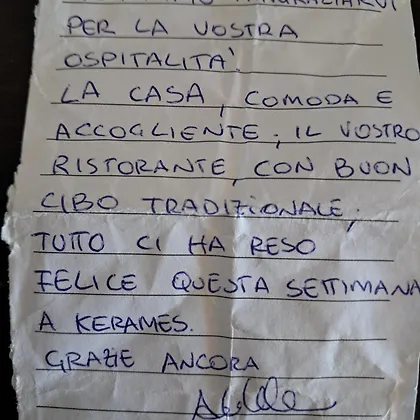 PER LA VOSTRA
OSPITALITA'.
LA CASA, COMODA E
ACCOGLIENTE; IL VOSTRO
RISTORANTE, CON BUON
CIBO TRADIZIONALE;
TUTTO CI HA RESO
FELICE QUESTA SETTIMANA
A KERAMES.
GRAZIE ANCORA